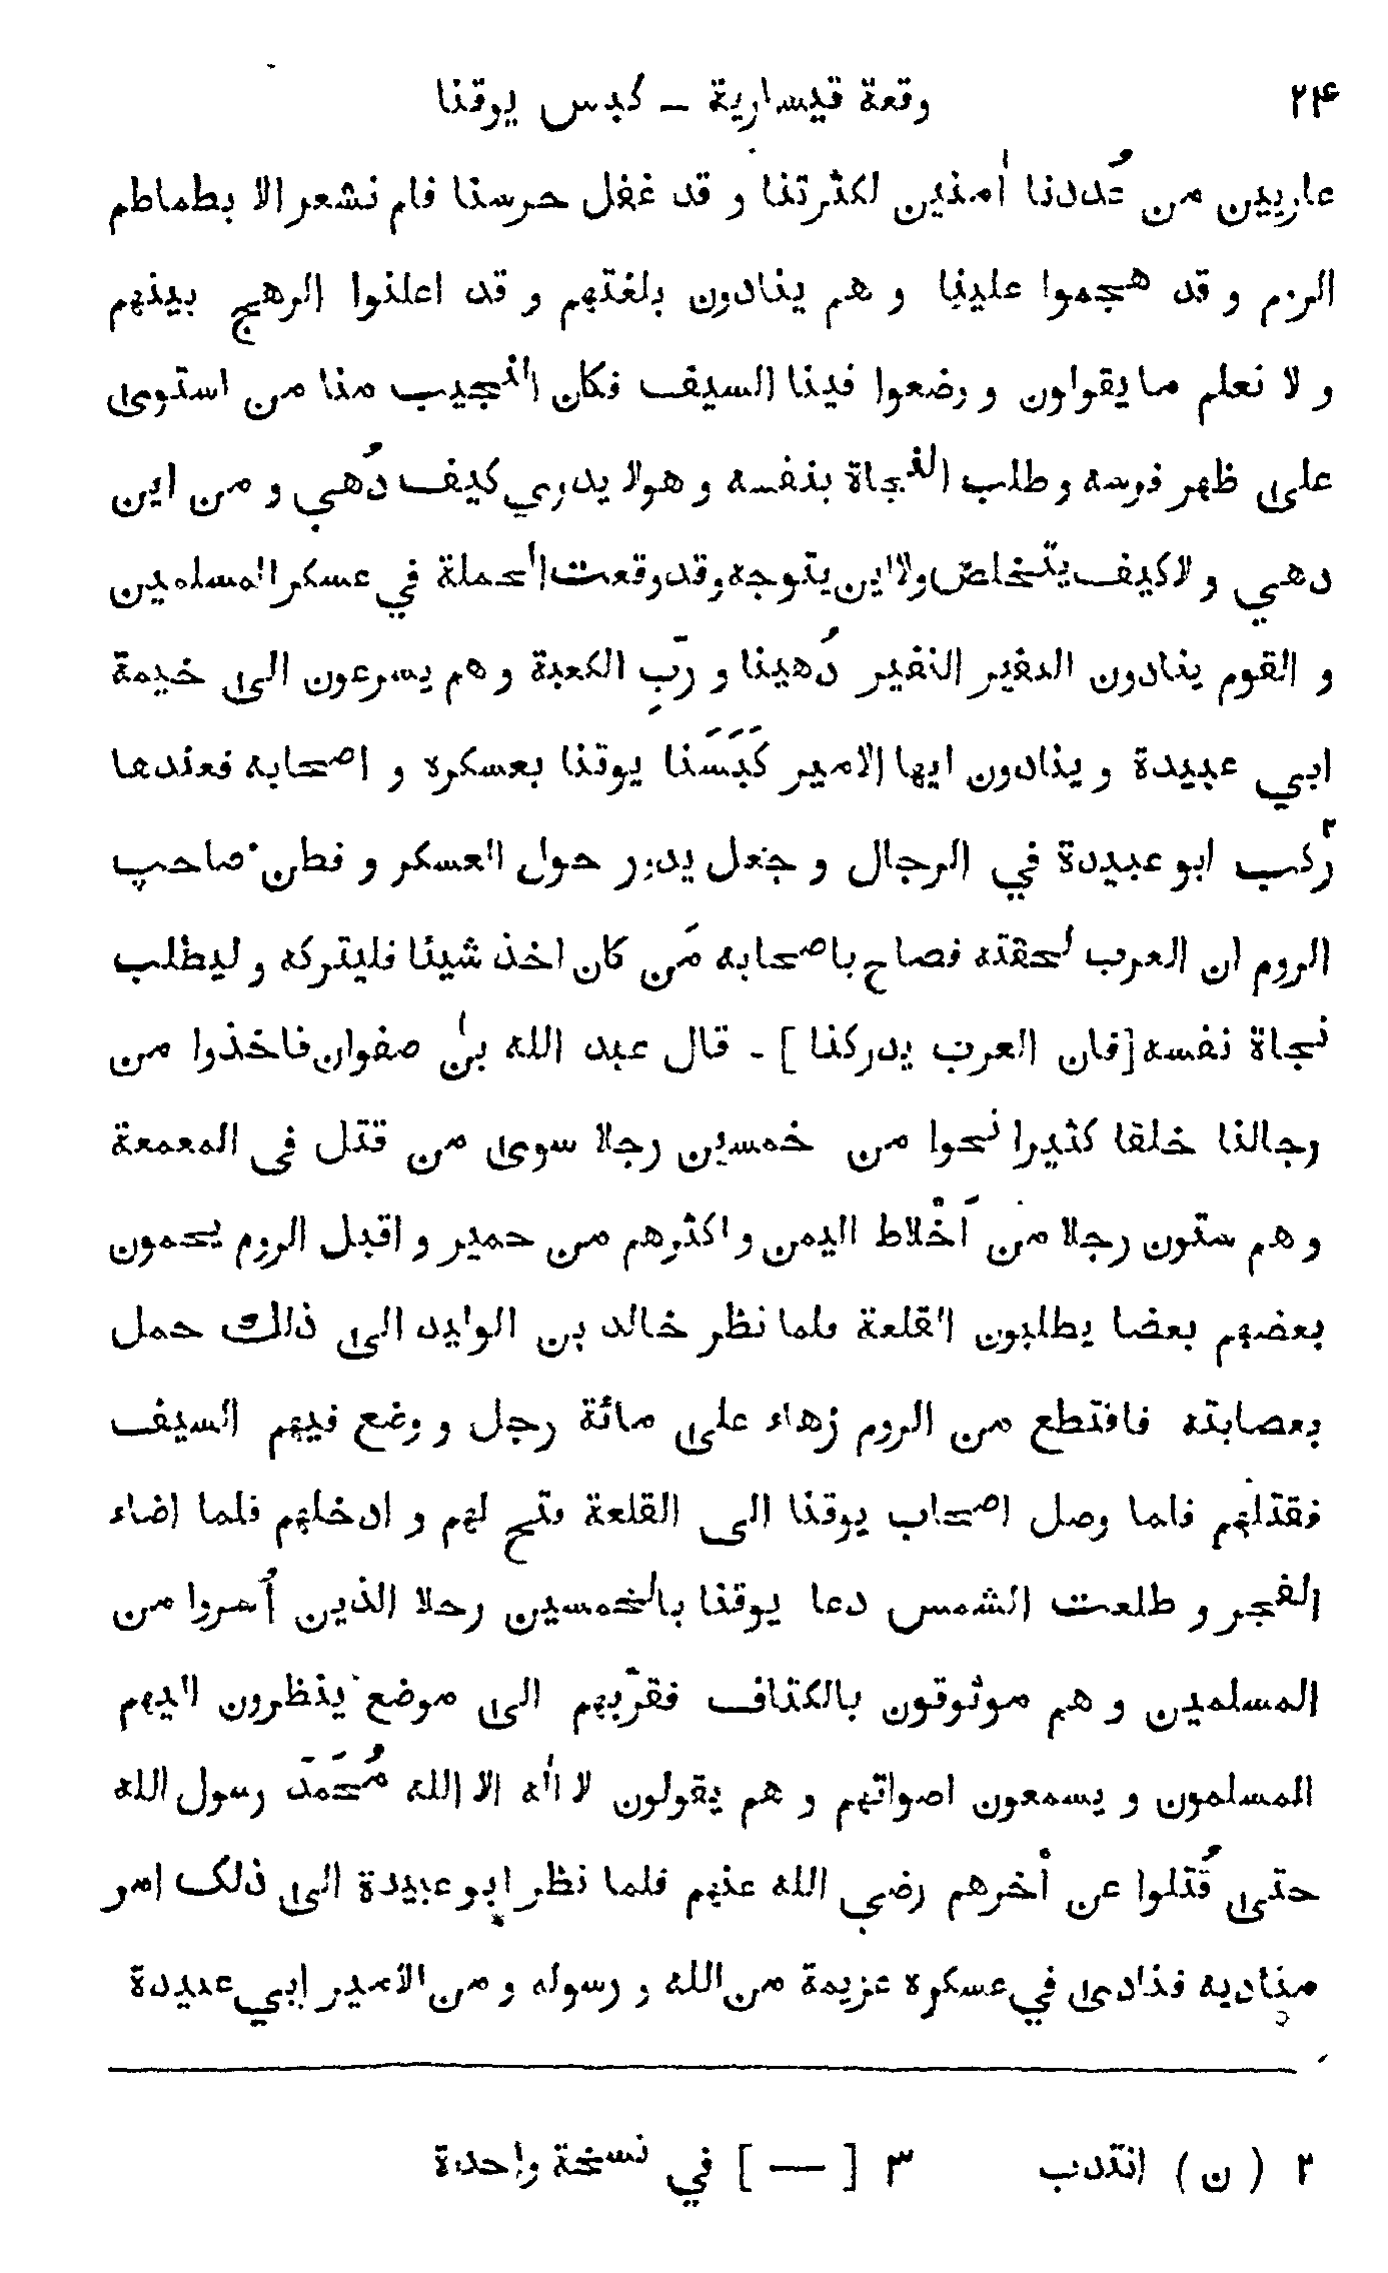 ٢٤ وقعة قيسارية ــ كبس يوقنا
عاريين من عُددنا أمنين لكثرتنا و قد غفل حرسنا فلم نشعر الا بطماطم
الروم و قد هجموا علينا و هم ينادون بلغتهم و قد اعلنوا الرهج بينهم
و لا نعلم ما يقولون و وضعوا فينا السيف فكان النجيب منا من استوى
على ظهر فرسه و طلب النجاة بنفسه و هولا يدري كيف دُهي و من اين
دهي و لا كيف يتخلص ولا اين يتوجه وقد وقعت الحملة في عسكر المسلمين
و القوم ينادون النفير النفير دُهينا و ربِّ الكعبة و هم يسرعون الى خيمة
ابي عبيدة و ينادون ايها الامير كَبَسَنا يوقنا بعسكره و اصحابه فعندها
ركب٢ ابو عبيدة في الرجال و جعل يدور حول العسكر و فطن صاحب
الروم ان العرب لحقته فصاح باصحابه مَن كان اخذ شيئا فليتركه و ليطلب
نجاة نفسه [فان العرب يدركنا] ـ قال عبد الله بن صفوان فاخذوا من
رجالنا خلقا كثيرا نحوا من خمسين رجلا سوى من قتل فى المعمعة
و هم ستون رجلا من اَخْلاط اليمن و اكثرهم من حمير و اقبل الروم يحمون
بعضهم بعضا يطلبون القلعة فلما نظر خالد بن الوليد الى ذلك حمل
بعصابته فاقتطع من الروم زهاء على مائة رجل و وضع فيهم السيف
فقتلهم فلما وصل اصحاب يوقنا الى القلعة فتح لهم و ادخلهم فلما اضاء
الفجر و طلعت الشمس دعا يوقنا بالخمسين رجلا الذين أُسروا من
المسلمين و هم موثوقون بالكتاف فقرّبهم الى موضع ينظرون اليهم
المسلمون و يسمعون اصواتهم و هم يقولون لا اله الا الله مُحَمَّد رسول الله
حتى قُتلوا عن أخرهم رضي الله عنهم فلما نظر ابو عبيدة الى ذلك امر
مناديه فنادى في عسكره عزيمة من الله و رسوله و من الامير ابي عبيدة
٢ ( ن ) انتدب ٣ [ — ] في نسخة واحدة